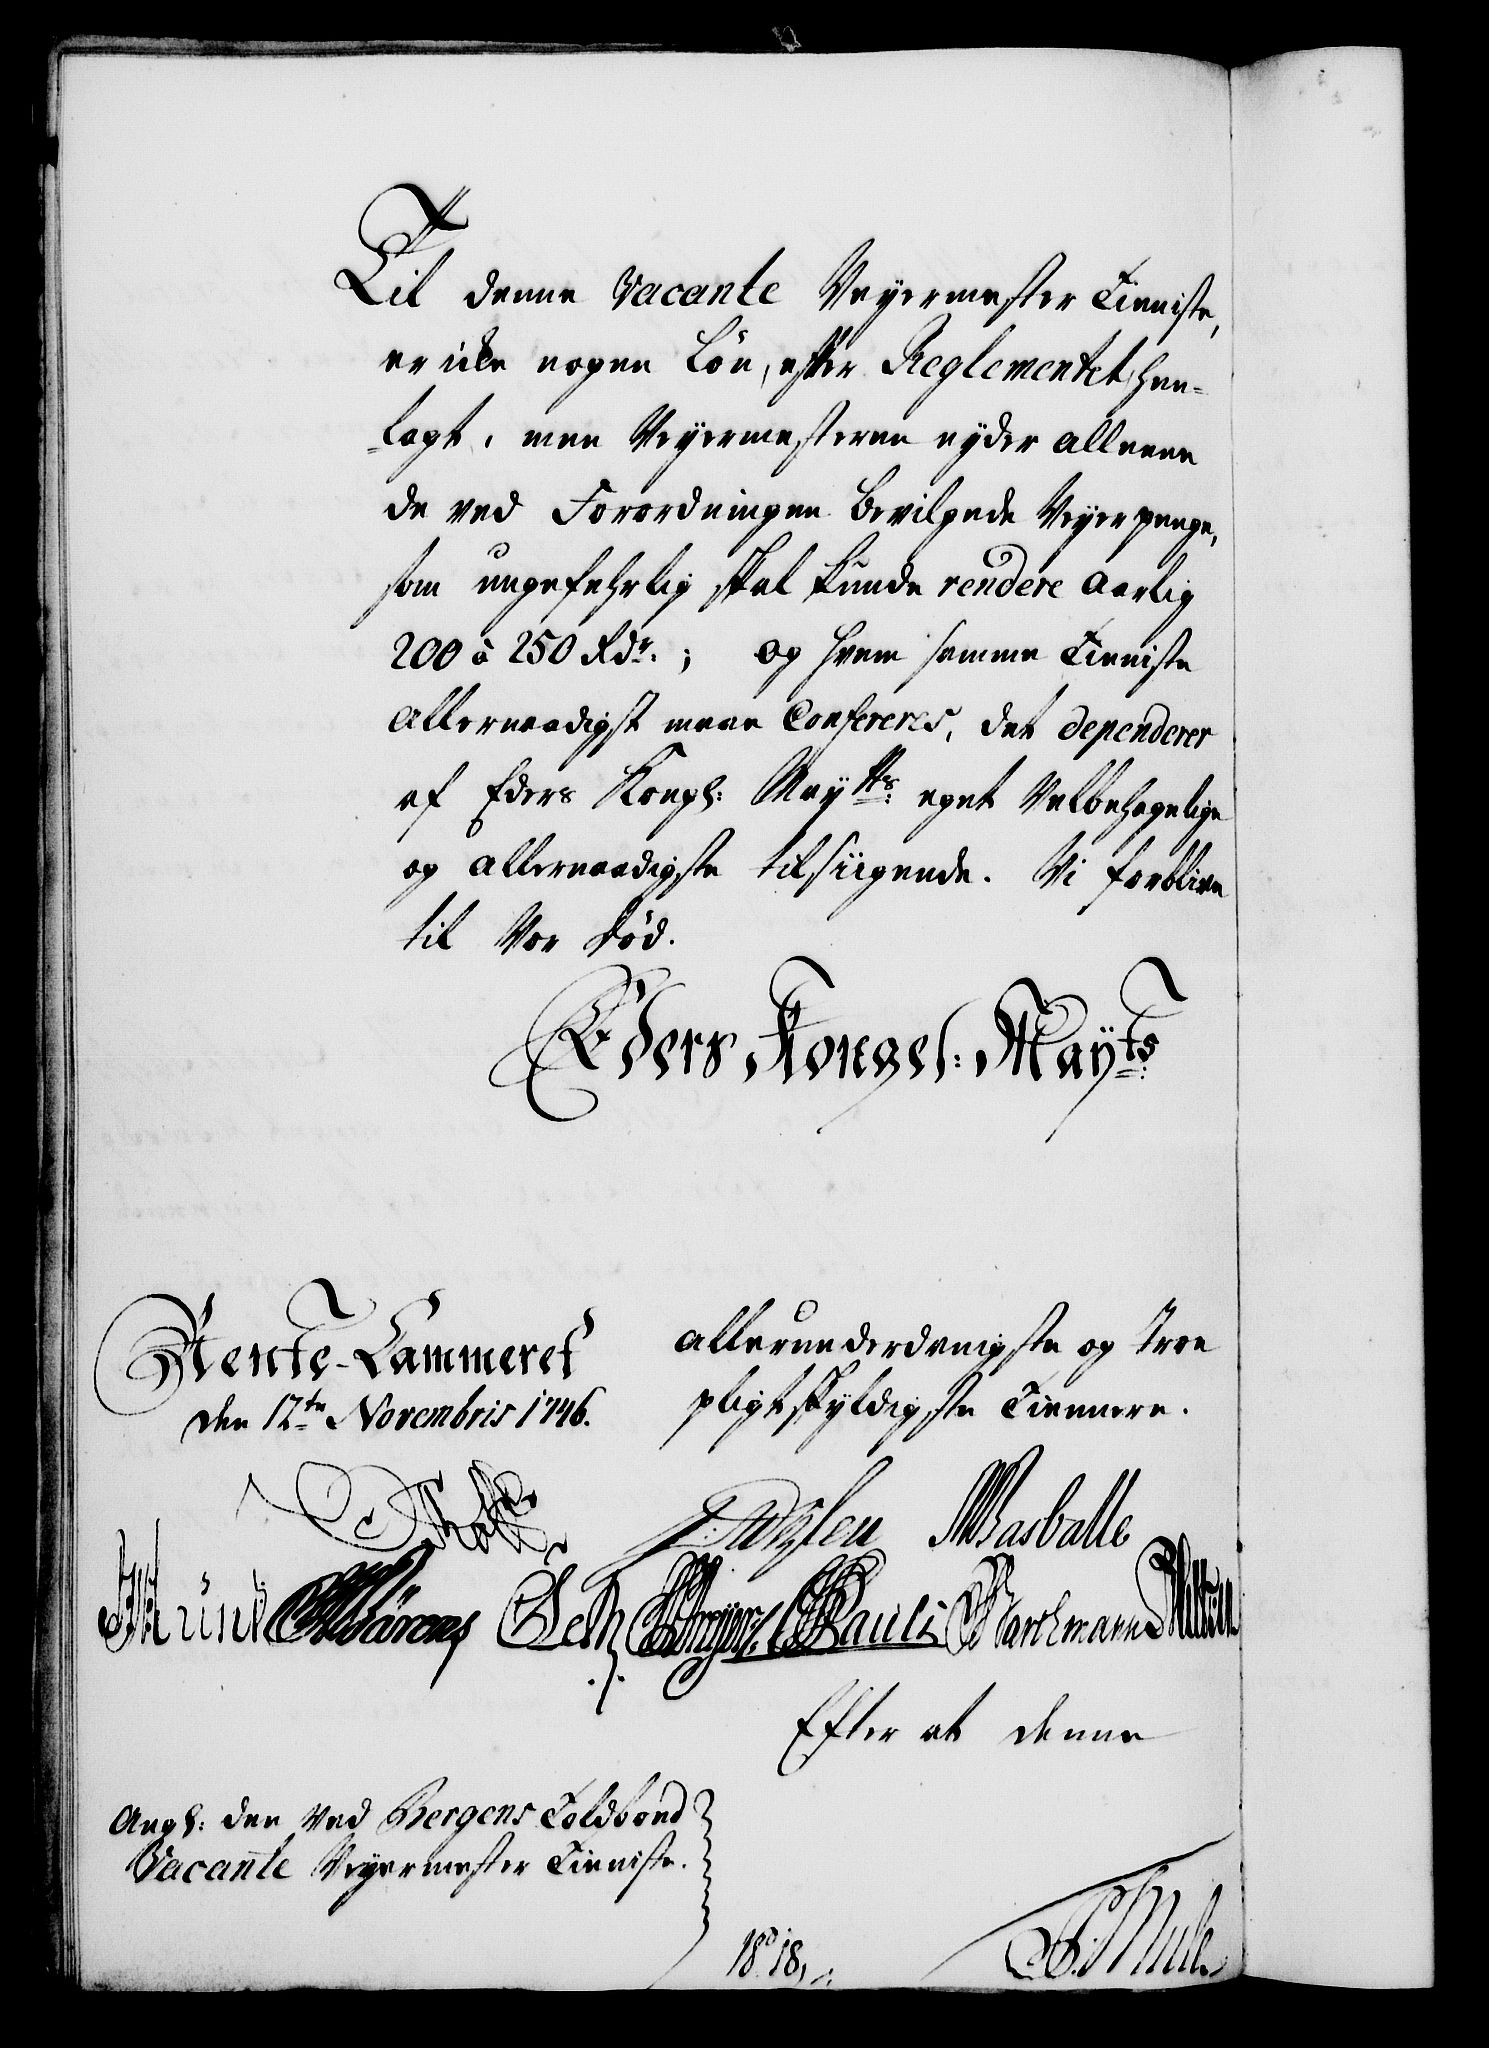 Til denne Vacante Veyermester Tieniste,
er icke nogen Løn, efter Reglementet, hen-
-lagt, men Veyermesteren nyder alleene
de ved Forordningen bevilgede Veyerpenge,
som ungefehrlig skal kunde rendere aarlig
200 à 250 Rdr.; og hvem samme Tieniste
allernaadigst maae Confereres, det dependerer
af Eders Kongl: Mayts: eget Velbehagelige
og allernaadigste tilsiigende. Vi forblive
til Vor Død.
Eders Kongel: Mayts:
Rente-Cammeret
den 12te Novembris 1746.
allerunderdanigste og troe
pligtskyldigste Tiennere.
Wasballe
Pauli
Efter at denne
Angl: den ved Bergens Toldboed
Vacante Veyermester Tieniste.
Mule